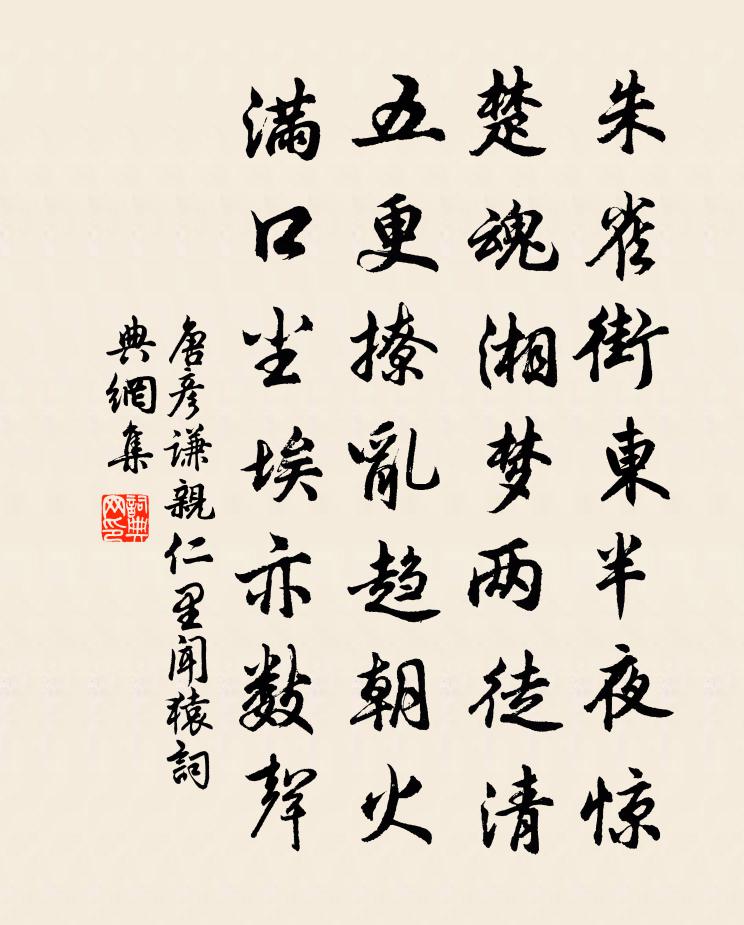 朱雀街東半夜惊
楚魂湘梦两徒清
五更撩亂趋朝火
滿口尘埃亦數聲
唐彦谦親仁里闻猿詞
典網集
詞典网印